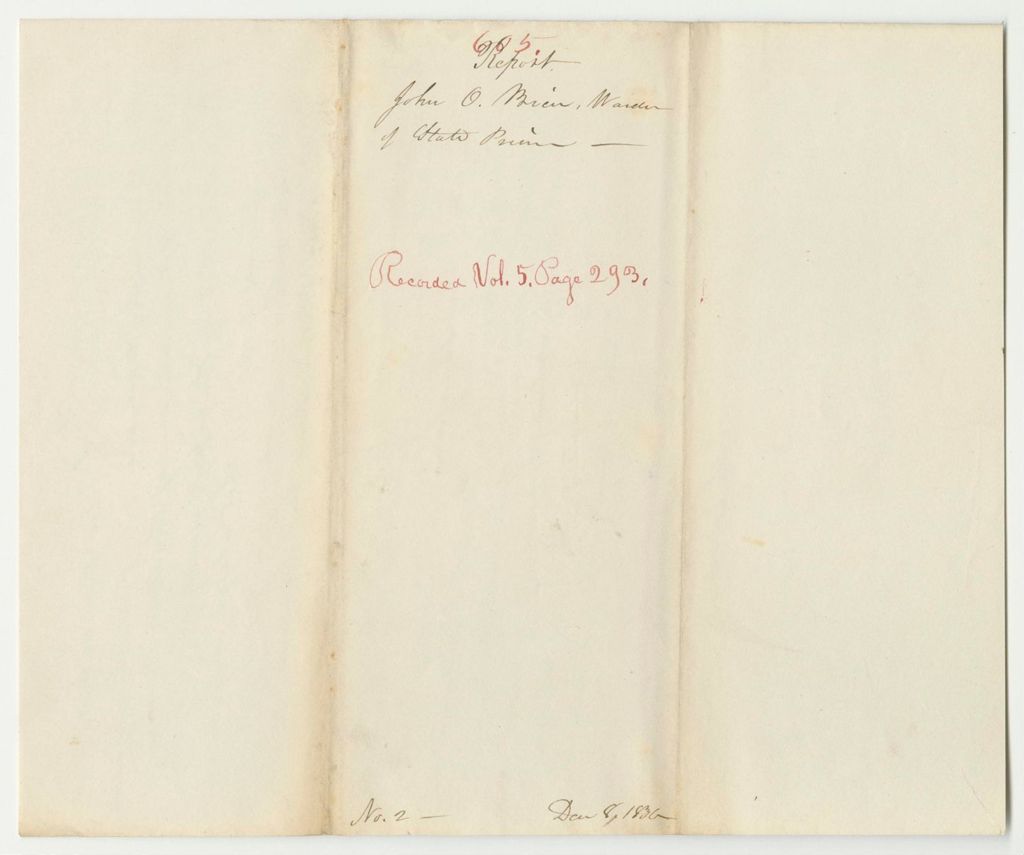 605.
Report.
John O. Brien, Warden
of State Prison —
Recorded Vol. 5. Page 293.
No. 2 —
Dec 8, 1836